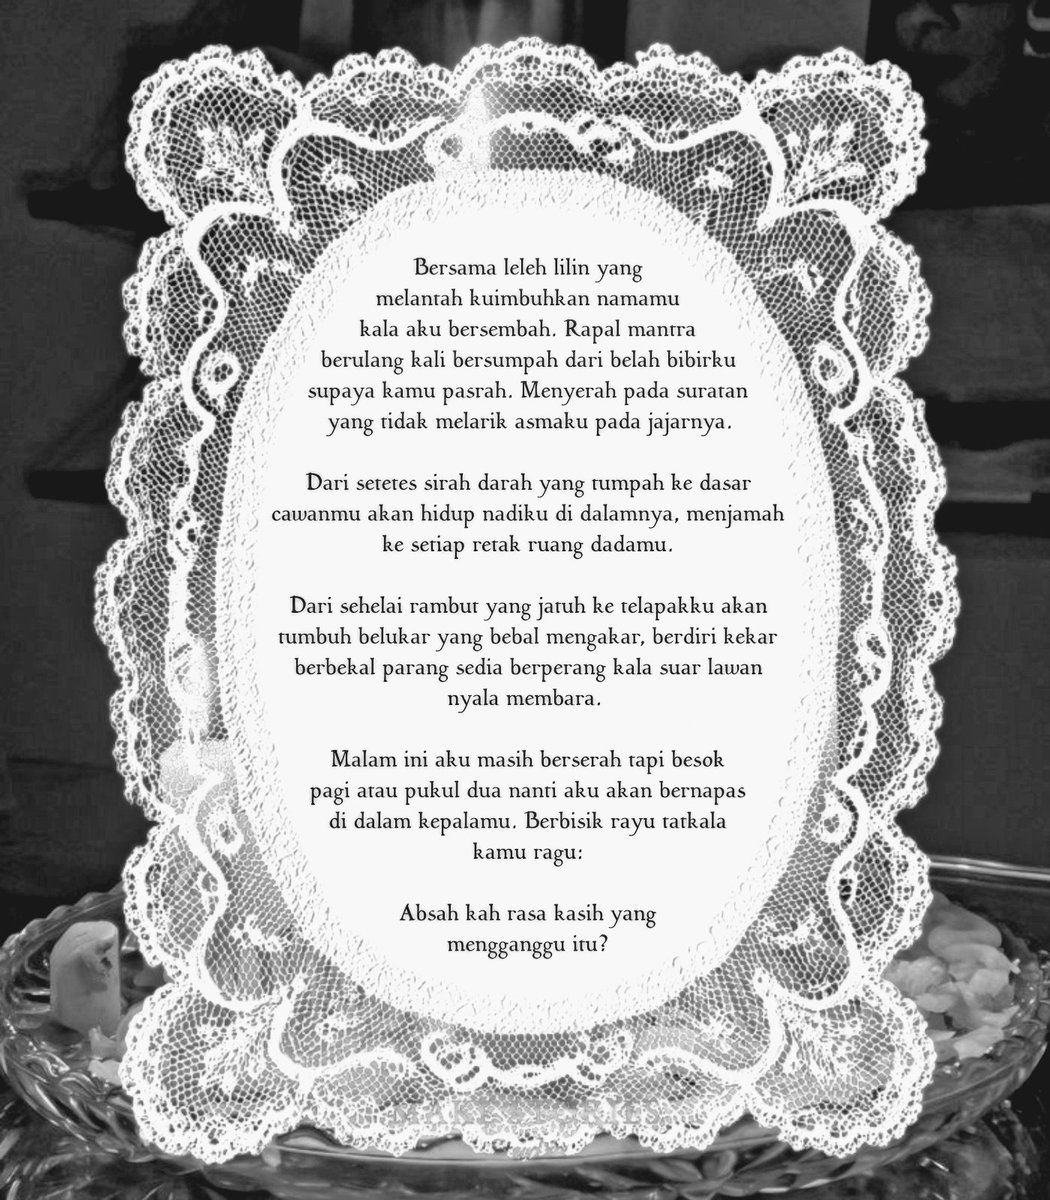 Bersama leleh lilin yang
melantah kuimbuhkan namamu
kala aku bersembah. Rapal mantra
berulang kali bersumpah dari belah bibirku
supaya kamu pasrah. Menyerah pada suratan
yang tidak melarik asmaku pada jajarnya.
Dari setetes sirah darah yang tumpah ke dasar
cawanmu akan hidup nadiku di dalamnya, menjamah
ke setiap retak ruang dadamu.
Dari sehelai rambut yang jatuh ke telapakku akan
tumbuh belukar yang bebal mengakar, berdiri kekar
berbekal parang sedia berperang kala suar lawan
nyala membara.
Malam ini aku masih berserah tapi besok
pagi atau pukul dua nanti aku akan bernapas
di dalam kepalamu. Berbisik rayu tatkala
kamu ragu:
Absah kah rasa kasih yang
mengganggu itu?